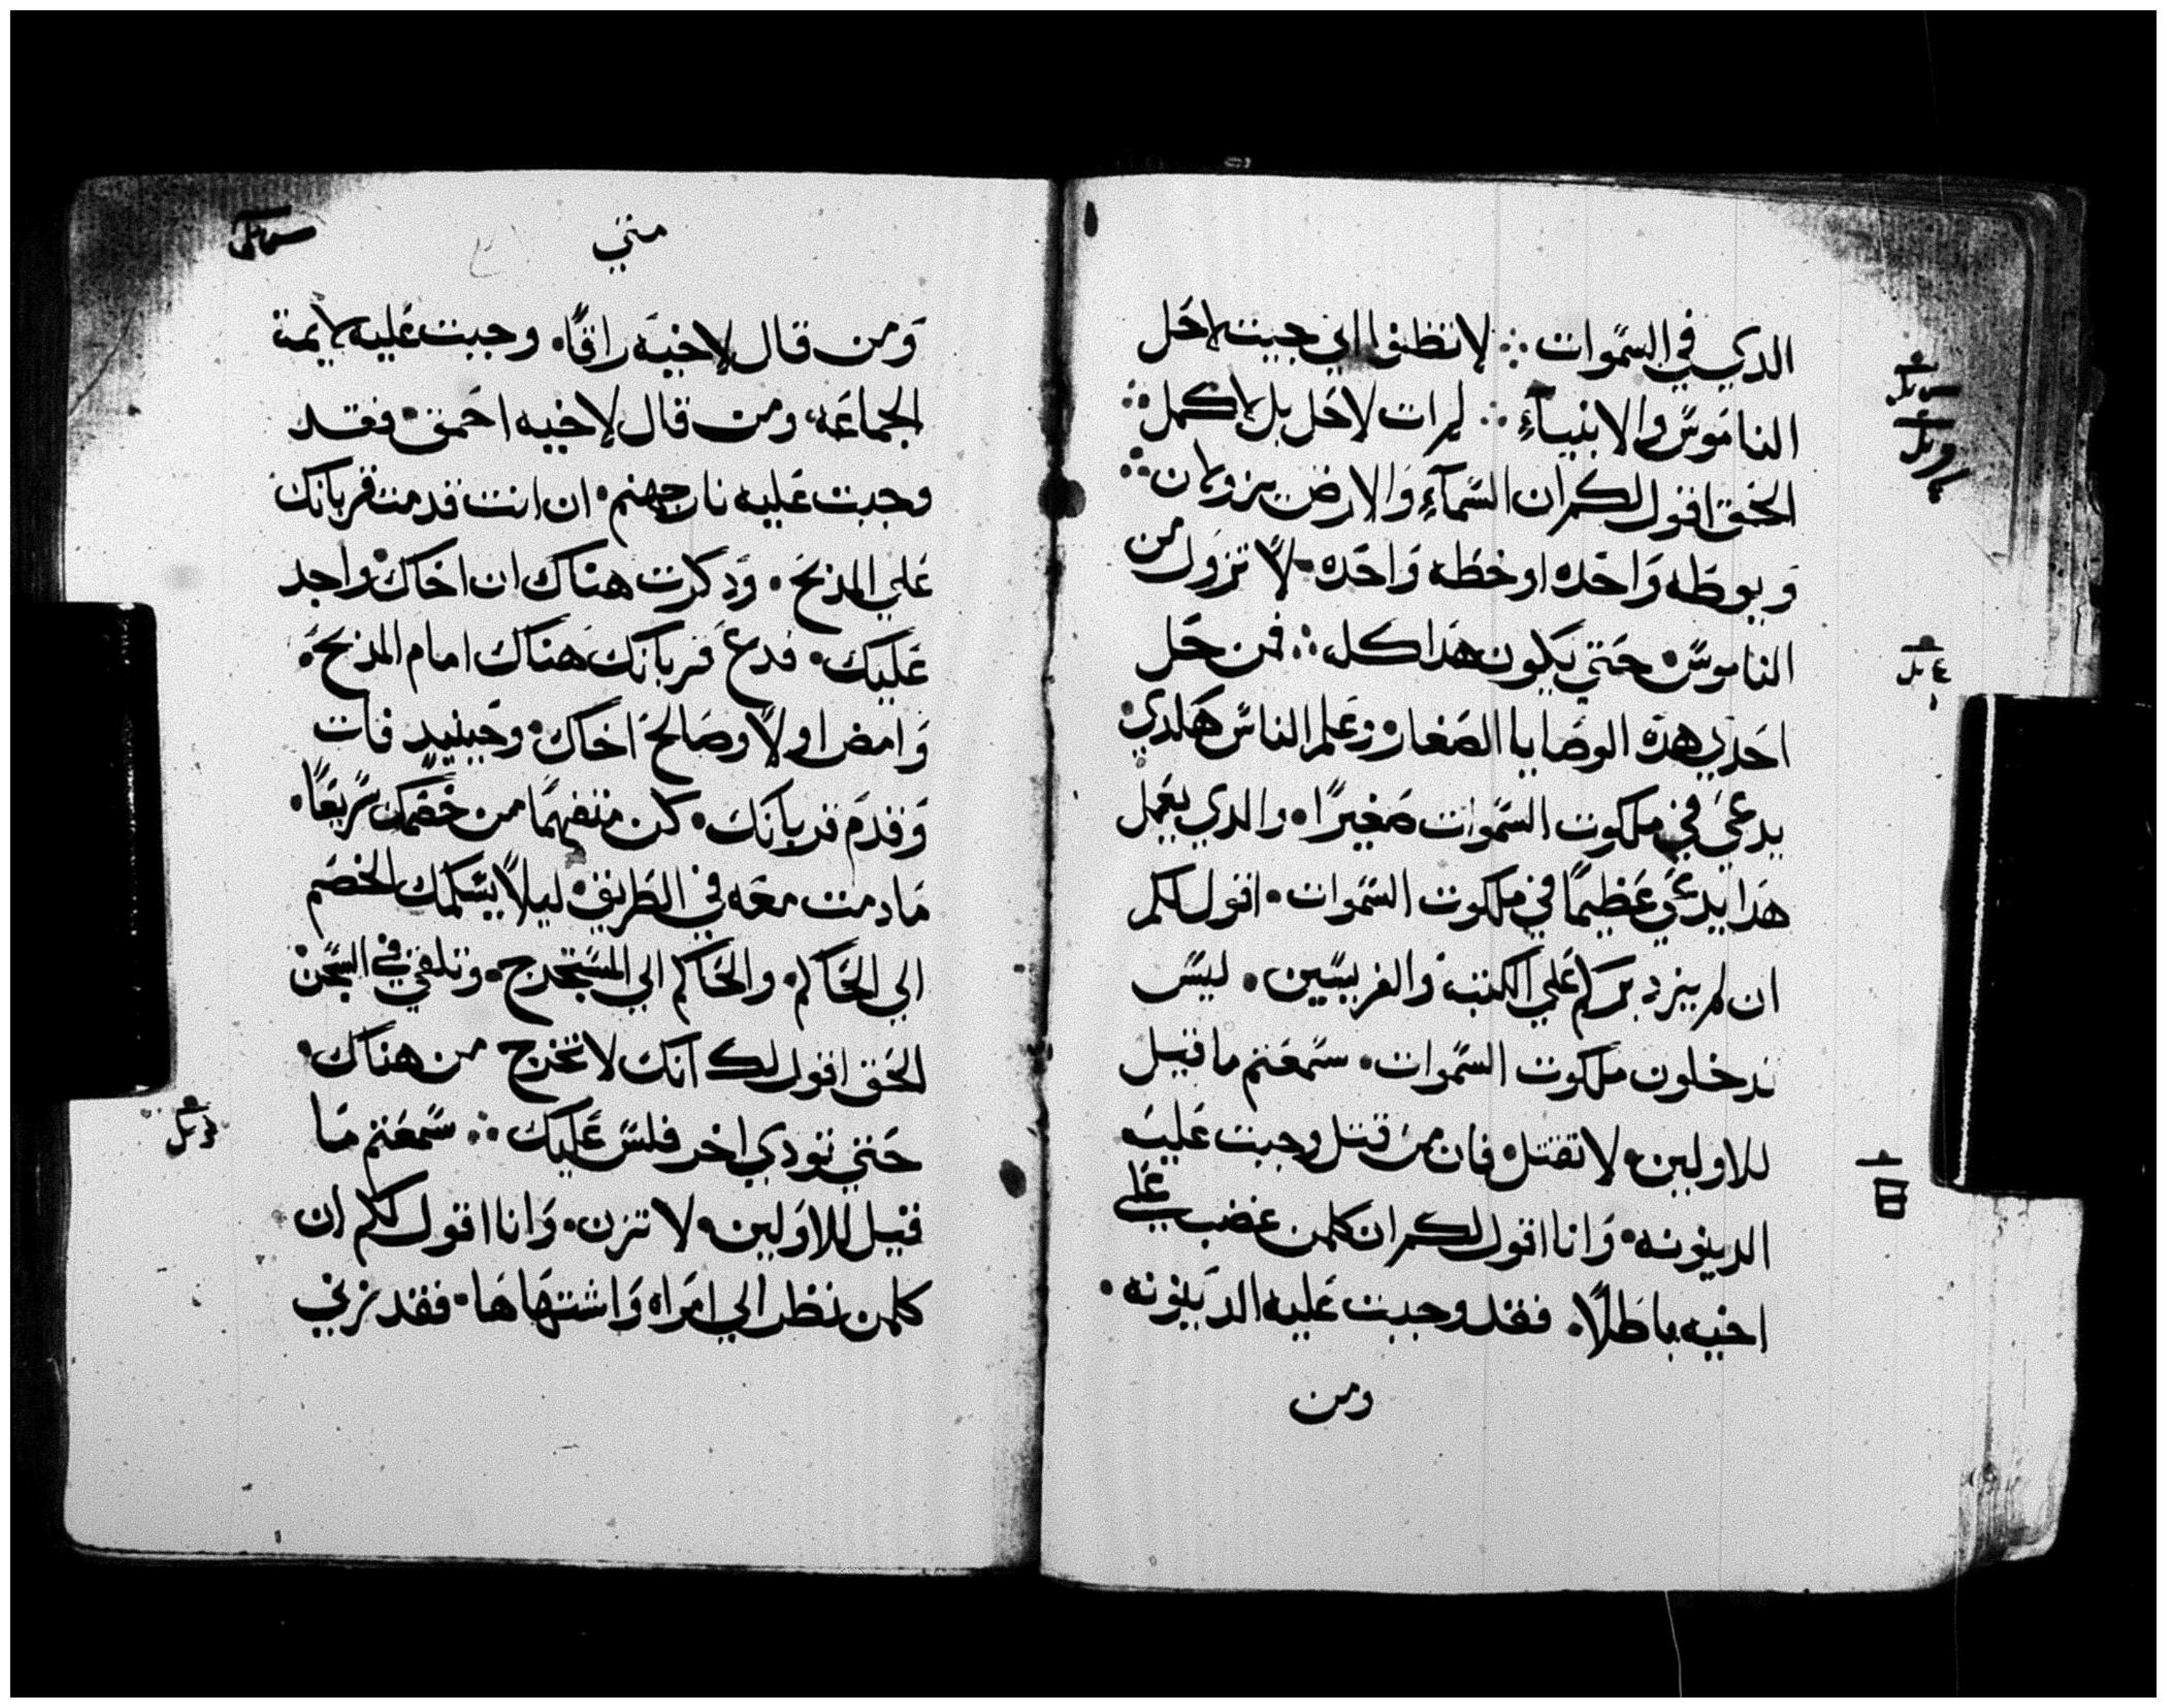 الدي في السموات ⁘ لا تظنوا اني جيت لاحل
الناموس والانبياء ⁘ لم ات لاحل بل لاكمل ⁘
الحق اقول لكم ان السماء والارض يزولان ⁘
ويوطه واحده او خطه واحده لا تزول من
الناموس حتي يكون هدا كله ⁘ فمن حل
احدي هده الوصايا الصغار وعلم الناس هكدي
يدعي في ملكوت السموات صغيرًا والدي يعمل
هدا يدعي عظيمًا في ملكوت السموات اقول لكم
ان لم يزد بركم علي الكتبه والفريسين ليس
تدخلون ملكوت السموات سمعتم ما قيل
للاولين لا تقتل فان من قتل وجبت عليه
الدينونه وانا اقول لكم ان كلمن غضب علي
اخيه باطلًا فقد وجبت عليه الدينونه
ومن
متي
ومن قال لاخيه راقًا وجبت عليه لايمة
الجماعه ومن قال لاخيه احمق فقد
وجبت عليه نار جهنم ان انت قدمت قربانك
علي المدبح ودكرت هناك ان اخاك واجد
عليك فدع قربانك هناك امام المدبح
وامض اولًا وصالح اخاك وحينيدٍ فات
وقدم قربانك كن متفهمًا من خصمك سريعًا
مادمت معه في الطريق ليلًا يسلمك الخصم
الي الحاكم والحاكم الي المستخرج وتلقي في السجن
الحق اقول لك انك لا تخرج من هناك
حتي تودي اخر فلس عليك ⁘ سمعتم ما
قيل للاولين لا تزن وانا اقول لكم ان
كلمن نظر الي امراه واشتهاها فقد زني